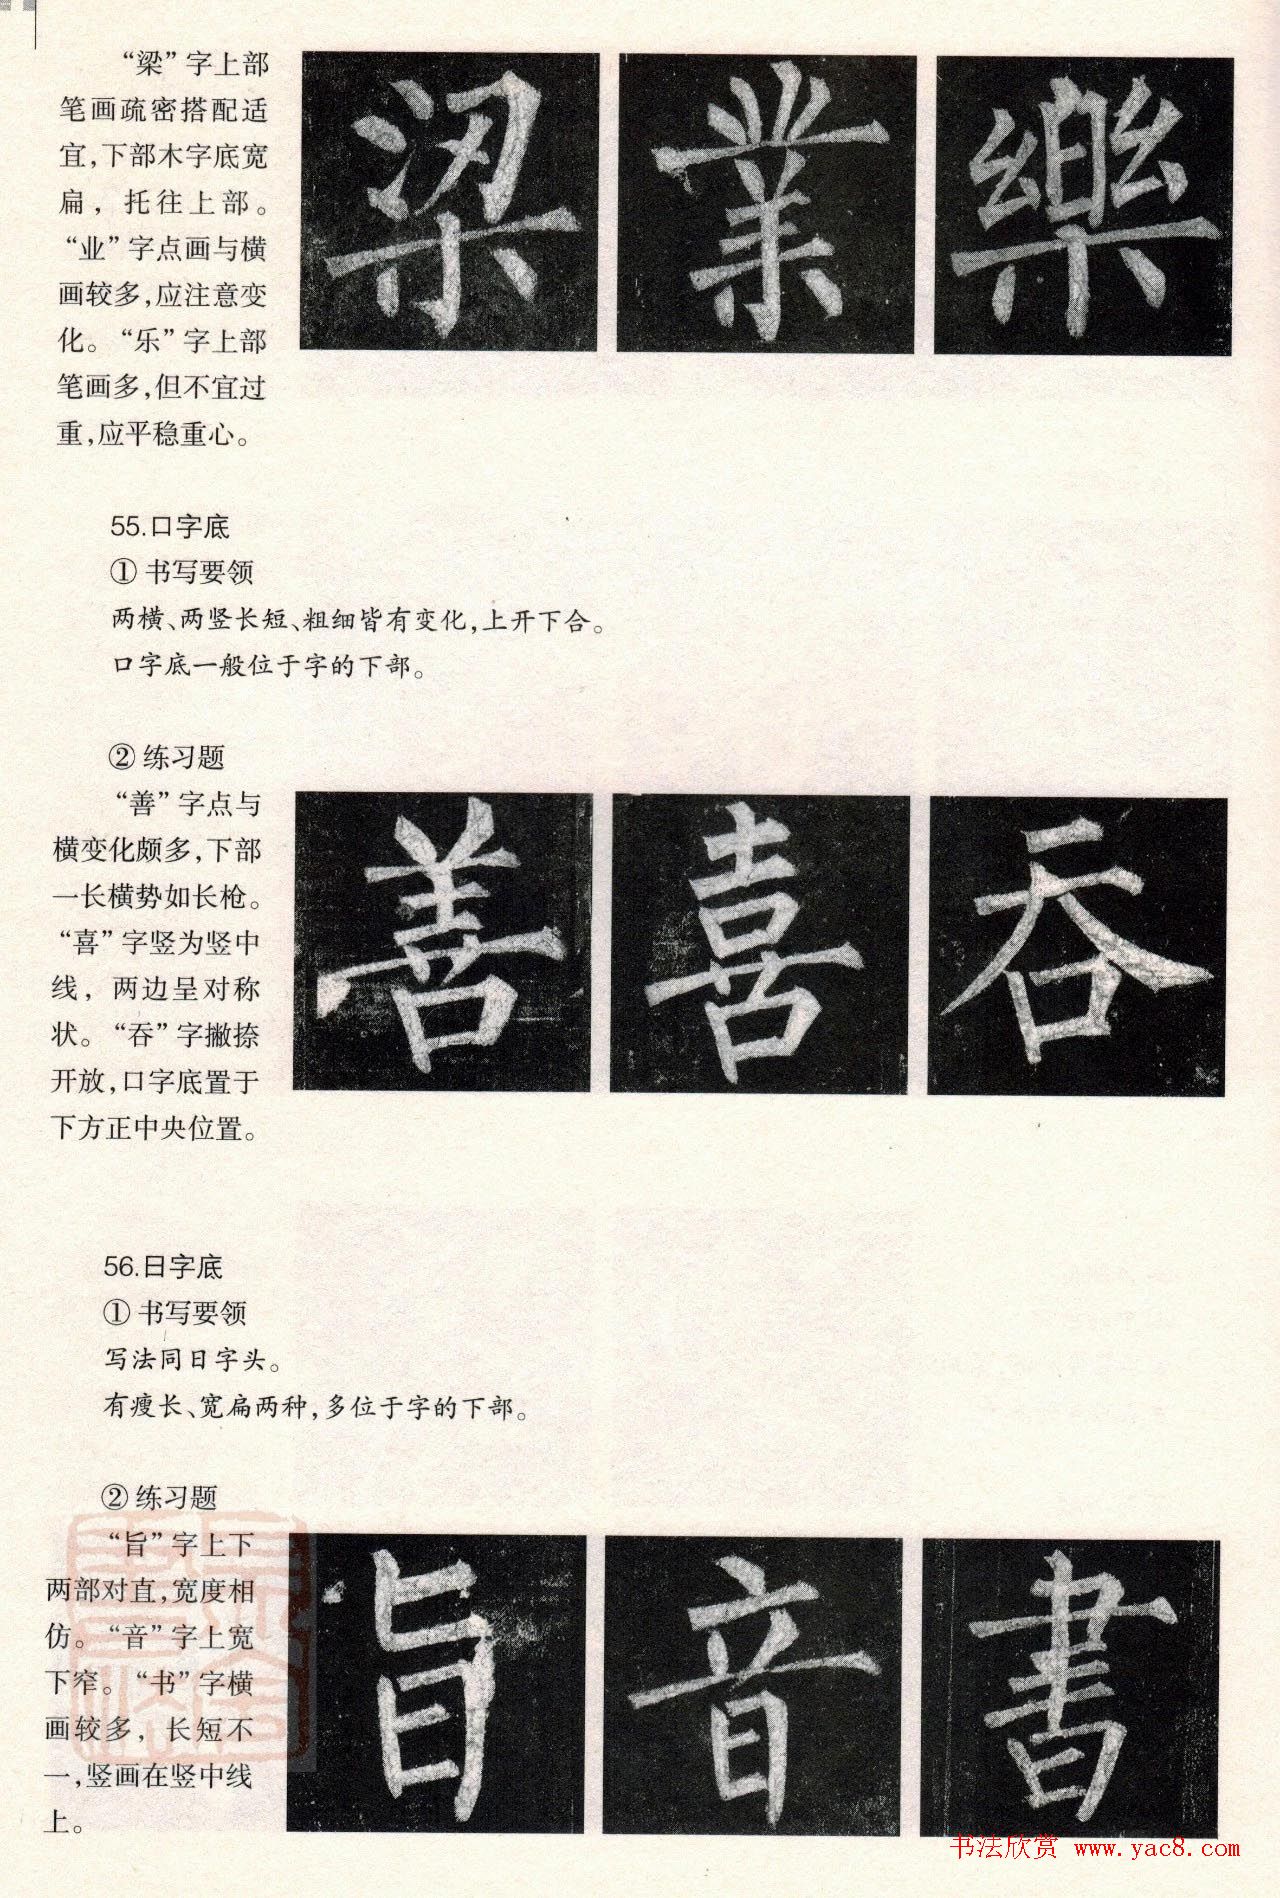 “梁”字上部
笔画疏密搭配适
宜,下部木字底宽
扁，托往上部。
“业”字点画与横
画较多,应注意变
化。“乐”字上部
笔画多,但不宜过
重,应平稳重心。
梁 業 樂
55.口字底
① 书写要领
两横、两竖长短、粗细皆有变化,上开下合。
口字底一般位于字的下部。
② 练习题
“善”字点与
横变化颇多,下部
一长横势如长枪。
“喜”字竖为竖中
线，两边呈对称
状。“吞”字撇捺
开放,口字底置于
下方正中央位置。
善 喜 吞
56.日字底
① 书写要领
写法同日字头。
有瘦长、宽扁两种,多位于字的下部。
② 练习题
“旨”字上下
两部对直,宽度相
仿。“音”字上宽
下窄。“书”字横
画较多，长短不
一,竖画在竖中线
上。
旨 音 書
书法欣赏 www.yac8.com